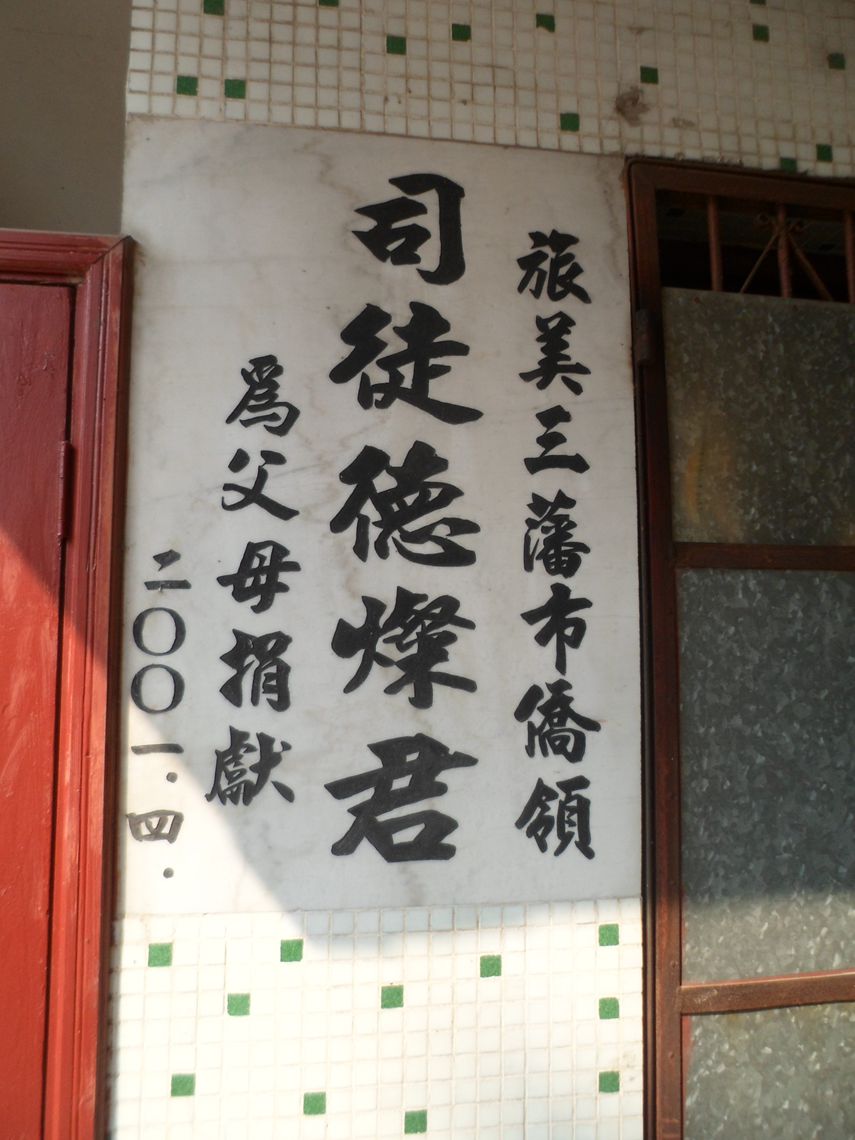 旅美三藩市僑領
司徒德燦君
爲父母捐獻
二〇〇一.四.